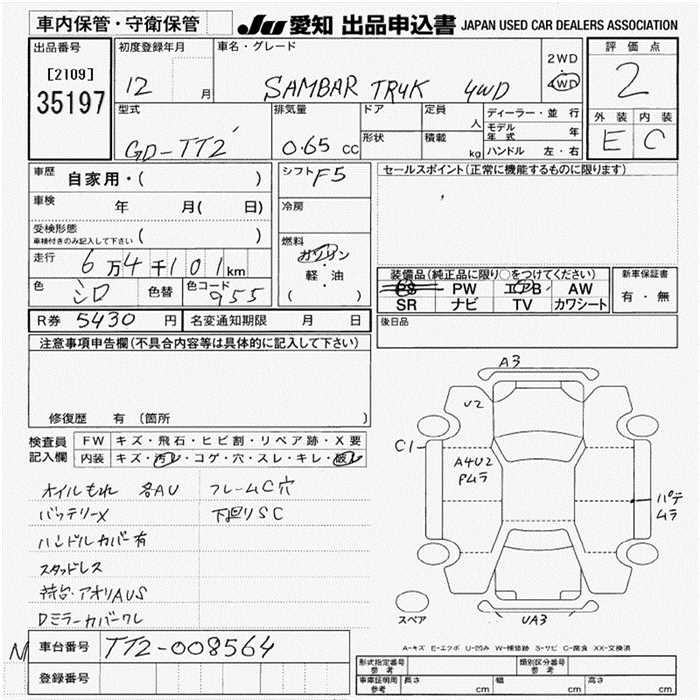 車内保管・守衛保管
JU 愛知 出品申込書 JAPAN USED CAR DEALERS ASSOCIATION
出品番号
[2109]
35197
初度登録年月
12 月
車名・グレード
SAMBAR TRUK 4WD
2WD
4WD
評価点
2
外装 内装
E C
型式
GD-TT2
排気量
0.65 cc
ドア
形状
定員
人
積載
kg
ディーラー・並行
モデル年式 年
ハンドル 左・右
車歴
自家用・( )
車検
年 月( 日)
受検形態
車検付きのみ記入して下さい ( )
走行
6万4千101km
色
シロ
色替
色コード
955
シフト F5
冷房
燃料
ガソリン
・
軽・油
( )
セールスポイント(正常に機能するものに限ります)
装備品(純正品に限り○をつけてください)
PS PW エアB AW
SR ナビ TV カワシート
新車保証書
有・無
R券 5430 円
名変通知期限 月 日
後日品
注意事項申告欄(不具合内容等は具体的に記入して下さい)
修復歴 有 (箇所 )
検査員
記入欄
FW キズ・飛石・ヒビ割・リペア跡・X要
内装 キズ・汚レ・コゲ・穴・スレ・キレ・破レ
オイルもれ 各AU フレームC穴
バッテリーX 下廻りSC
ハンドルカバー有
スタッドレス
荷台・アオリAUS
Dミラーカバーワレ
A3
U2
C1
A4U2
Pムラ
パテ
ムラ
スペア
UA3
A-キズ E-エクボ U-凹み W-補修跡 S-サビ C-腐食 XX-交換済
N
車台番号 TT2-008564
登録番号
形式指定番号
参考
類別区分番号
参考
車庫証明用
参考
長さ cm 幅 cm 高さ cm